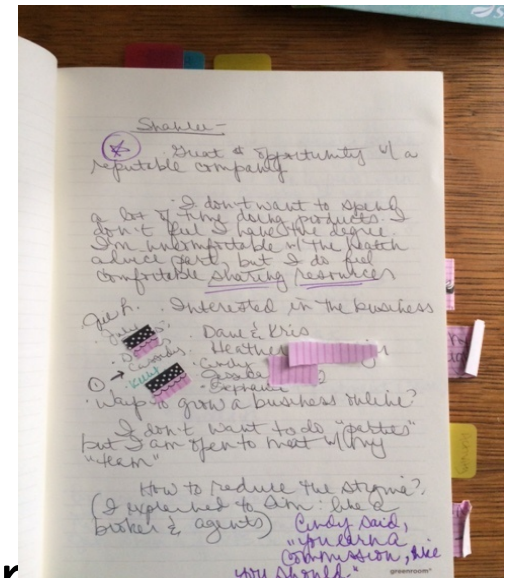 Shaklee -
Great opportunity w/ a
reputable company
I don't want to spend
a lot of time doing products. I
don't feel I have the degree.
I'm uncomfortable w/ the health
advice part, but I do feel
comfortable sharing resources
Interested in the business
Dave & Kris
Heather
Cindy
Kelly
Stephanie
Ways to grow a business online?
I don't want to do "parties"
but I am open to meet w/ my
"team"
How to reduce the stigma?
(I explained to Jim: like a
broker & agents)
Cindy said,
"you earn a
commission, like
you should"
greenroom